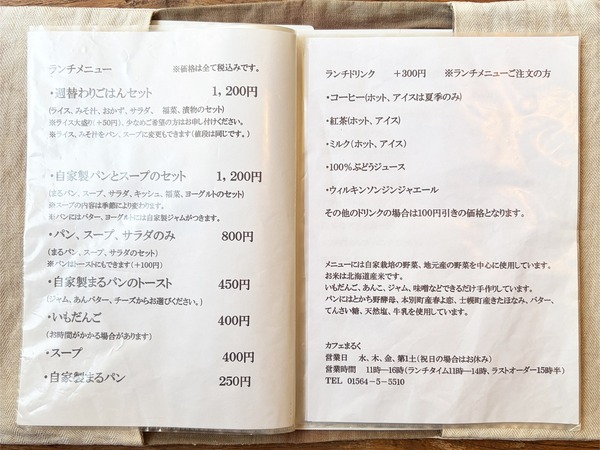 ランチメニュー ※価格は全て税込みです。
・週替わりごはんセット 1,200円
(ライス、みそ汁、おかず、サラダ、 福菜、漬物のセット)
※ライス大盛り(+50円)、少なめご希望の方はお申し付けください。
※ライス、みそ汁をパン、スープに変更もできます(値段は同じです。)
・自家製パンとスープのセット 1,200円
(まるパン、スープ、サラダ、キッシュ、福菜、ヨーグルトのセット)
※スープの内容は季節により変わります。
※パンにはバター、ヨーグルトには自家製ジャムがつきます。
・パン、スープ、サラダのみ 800円
(まるパン、スープ、サラダのセット)
※パンはトーストにもできます(+100円)
・自家製まるパンのトースト 450円
(ジャム、あんバター、チーズからお選びください。)
・いもだんご 400円
(お時間がかかる場合があります)
・スープ 400円
・自家製まるパン 250円
ランチドリンク +300円 ※ランチメニューご注文の方
・コーヒー(ホット、アイスは夏季のみ)
・紅茶(ホット、アイス)
・ミルク(ホット、アイス)
・100%ぶどうジュース
・ウィルキンソンジンジャエール
その他のドリンクの場合は100円引きの価格となります。
メニューには自家栽培の野菜、地元産の野菜を中心に使用しています。
お米は北海道産米です。
いもだんご、あんこ、ジャム、味噌などできるだけ手作りしています。
パンにはとかち野酵母、本別町産春よ恋、士幌町産きたほなみ、バター、
てんさい糖、天然塩、牛乳を使用しています。
カフェまるく
営業日 水、木、金、第1土(祝日の場合はお休み)
営業時間 11時―16時(ランチタイム11時―14時、ラストオーダー15時半)
TEL 01564-5-5510